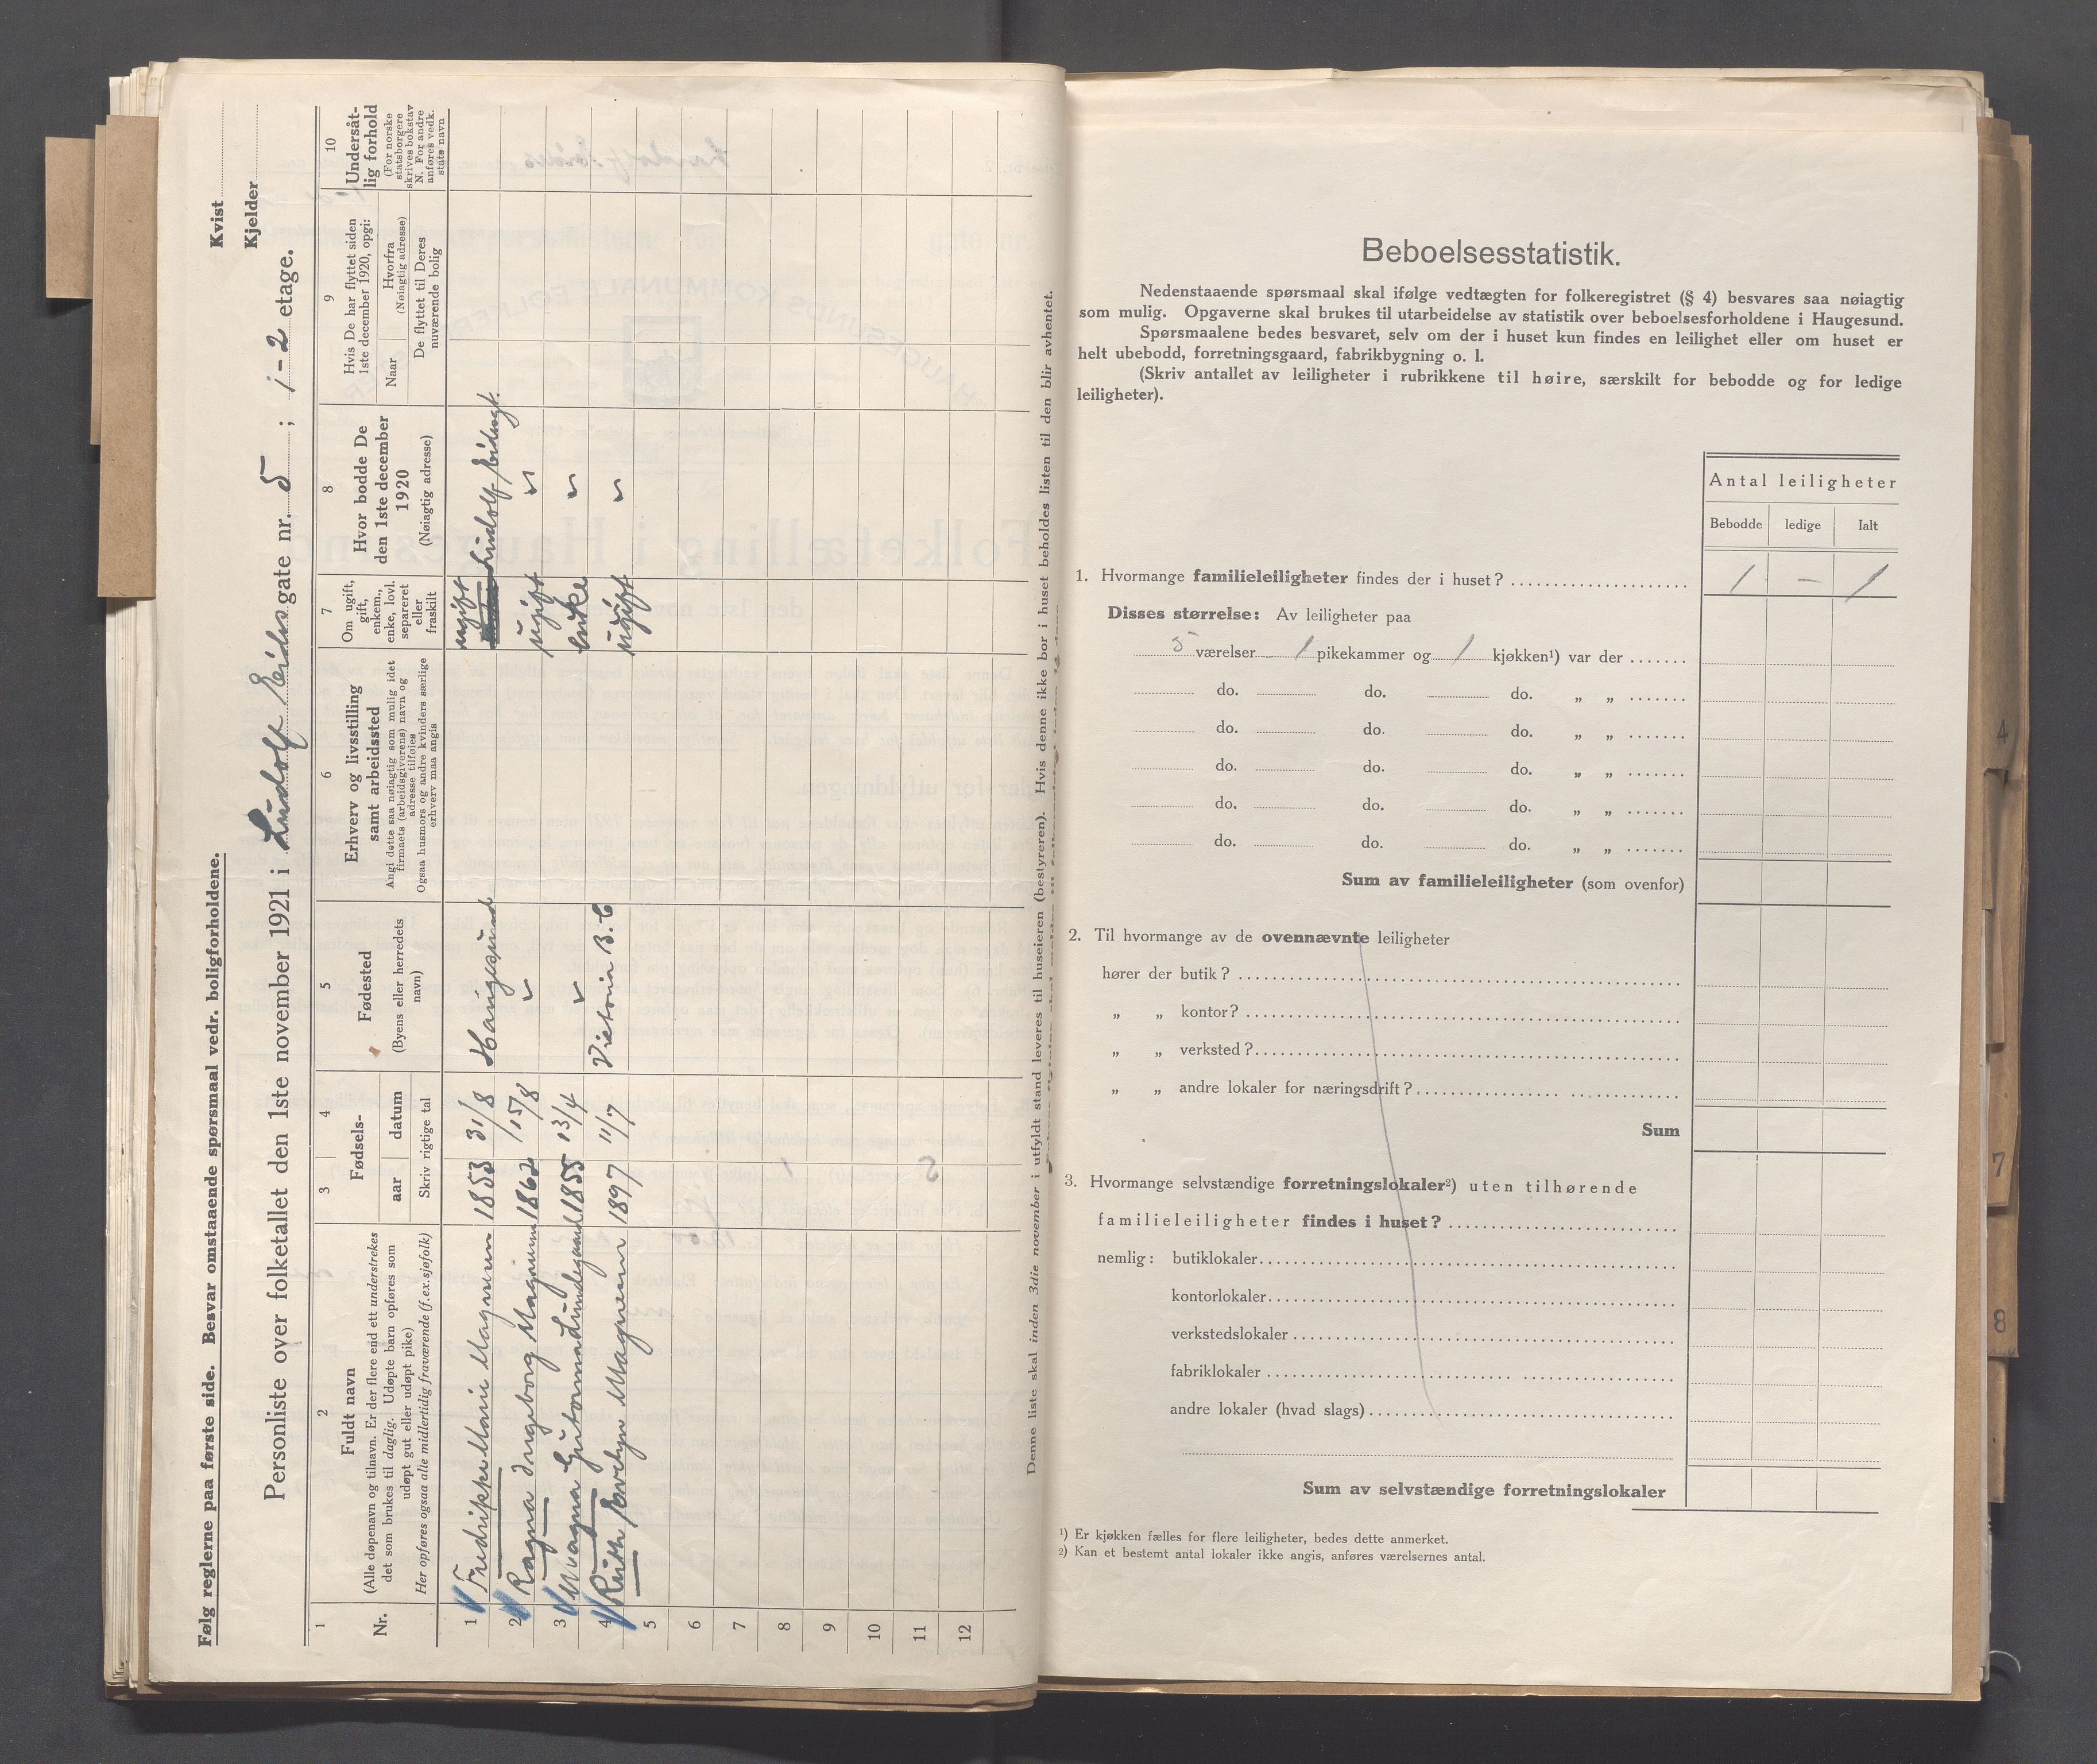 Følg reglerne paa første side. Besvar omstaaende spørsmaal vedr. boligforholdene.
Kvist
Kjelder
Personliste over folketallet den 1ste november 1921 i Ludolf Eides gate nr. 5 ; 1-2 etage.
1
Nr.
2
Fuldt navn
(Alle døpenavn og tilnavn. Er der flere end ett understrekes
det som brukes til daglig. Udøpte barn opføres som
udøpt gut eller udøpt pike)
Her opføres ogsaa alle midlertidig fraværende (f.ex. sjøfolk)
3
4
Fødsels-
aar
datum
Skriv rigtige tal
5
Fødested
(Byens eller herredets
navn)
6
Erhverv og livsstilling
samt arbeidssted
Angi dette saa nøiagtig som mulig idet
firmaets (arbeidsgiverens) navn og
adresse tilføies
Ogsaa husmors og andre kvinders særlige
erhverv maa angis
7
Om ugift,
gift,
enkem.,
enke, lovl.
separeret
eller
fraskilt
8
Hvor bodde De
den 1ste december
1920
(Nøiagtig adresse)
9
Hvis De har flyttet siden
1ste december 1920, opgi:
Naar
Hvorfra
(Nøiagtig adresse)
De flyttet til Deres
nuværende bolig
10
Undersåt-
lig forhold
(For norske
statsborgere
skrives bokstav
N. For andre
anføres vedk.
stats navn
1 Fredrikke Marie Magnum 1853 31/8 Haugesund ugift Ludolf Eidesgt.
2 Ragna Ingeborg Magnum 1862 15/8 " ugift "
3 Magna Guttorma Lindegaard 1855 13/4 " enke "
4 Ruth Evelyn Magnum 1897 11/7 Victoria B.C ugift "
5
6
7
8
9
10
11
12
Denne liste skal inden 3die november i utfyldt stand leveres til huseieren (bestyreren). Hvis denne ikke bor i huset beholdes listen til den blir avhentet.
Beboelsesstatistik.
Nedenstaaende spørsmaal skal ifølge vedtægten for folkeregistret (§ 4) besvares saa nøiagtig
som mulig. Opgaverne skal brukes til utarbeidelse av statistik over beboelsesforholdene i Haugesund.
Spørsmaalene bedes besvaret, selv om der i huset kun findes en leilighet eller om huset er
helt ubebodd, forretningsgaard, fabrikbygning o. l.
(Skriv antallet av leiligheter i rubrikkene til høire, særskilt for bebodde og for ledige
leiligheter).
Antal leiligheter
Bebodde ledige Ialt
1. Hvormange familieleiligheter findes der i huset? 1 – 1
Disses størrelse: Av leiligheter paa
5 værelser 1 pikekammer og 1 kjøkken¹) var der
do. do. do. „ „
do. do. do. „ „
do. do. do. „ „
do. do. do. „ „
do. do. do. „ „
Sum av familieleiligheter (som ovenfor)
2. Til hvormange av de ovennævnte leiligheter
hører der butik?
„ „ kontor?
„ „ verksted?
„ „ andre lokaler for næringsdrift?
Sum
3. Hvormange selvstændige forretningslokaler²) uten tilhørende
familieleiligheter findes i huset?
nemlig: butiklokaler
kontorlokaler
verkstedslokaler
fabriklokaler
andre lokaler (hvad slags)
Sum av selvstændige forretningslokaler
¹) Er kjøkken fælles for flere leiligheter, bedes dette anmerket.
²) Kan et bestemt antal lokaler ikke angis, anføres værelsernes antal.
4
7
8